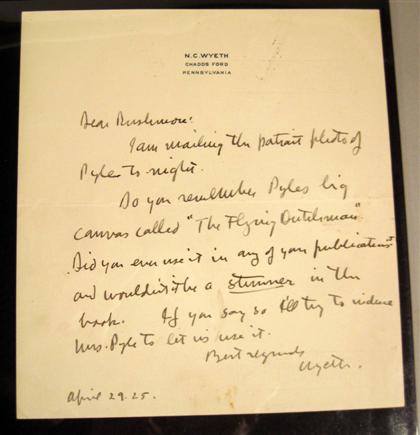 N.C. WYETH
CHADDS FORD
PENNSYLVANIA
Dear Rushmore:
I am mailing the portrait photo of
Pyle to-night.
Do you remember Pyles big
canvas called "The Flying Dutchman".
Did you ever use it in any of your publications?
and wouldn't it be a stunner in the
book. If you say so I'll try to induce
Mrs. Pyle to let us use it.
Best regards
Wyeth.
April 29.25.